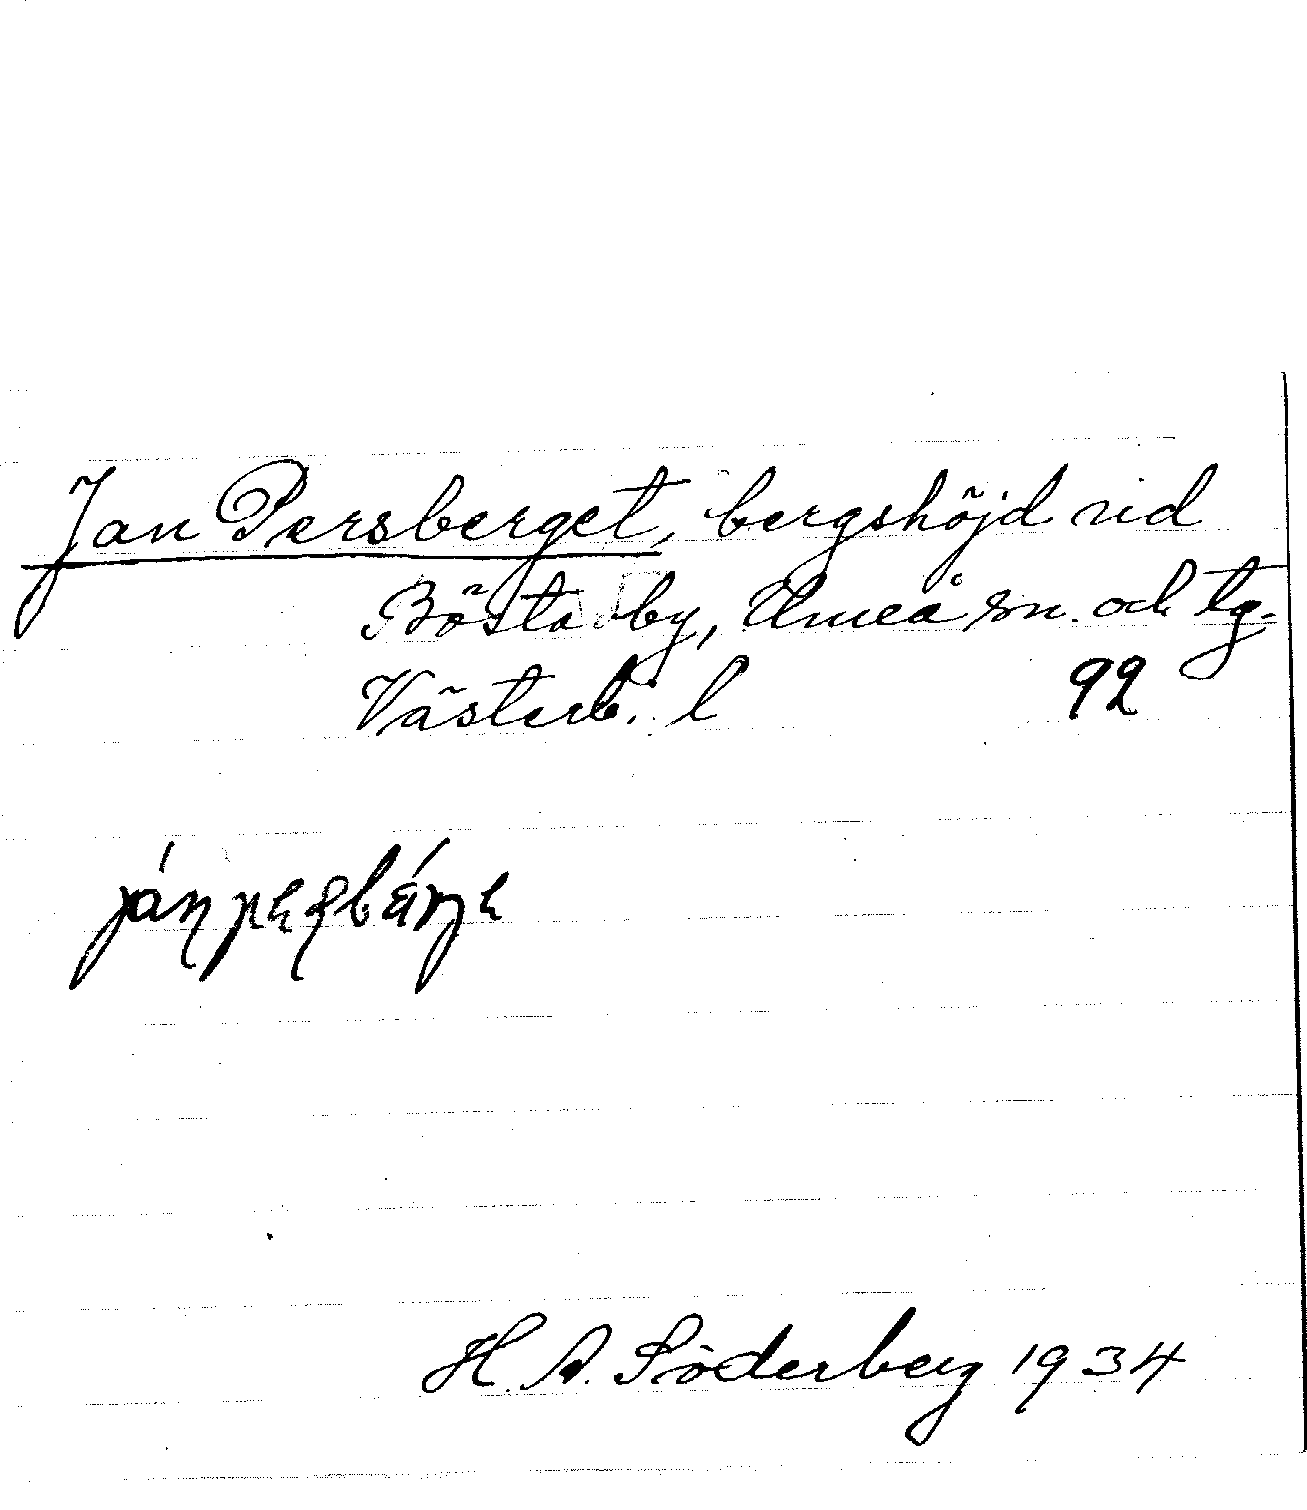 Jan Persberget, bergshöjd vid
Bösta by, Umeå sn. och tg.
Västerb. l 92
H. A. Söderberg 1934